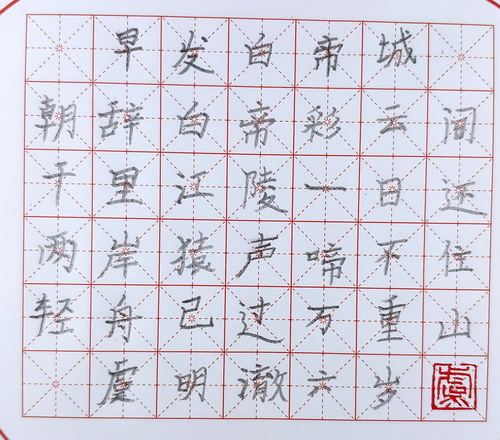 早发白帝城
朝辞白帝彩云间
千里江陵一日还
两岸猿声啼不住
轻舟已过万重山
虞明澈六岁